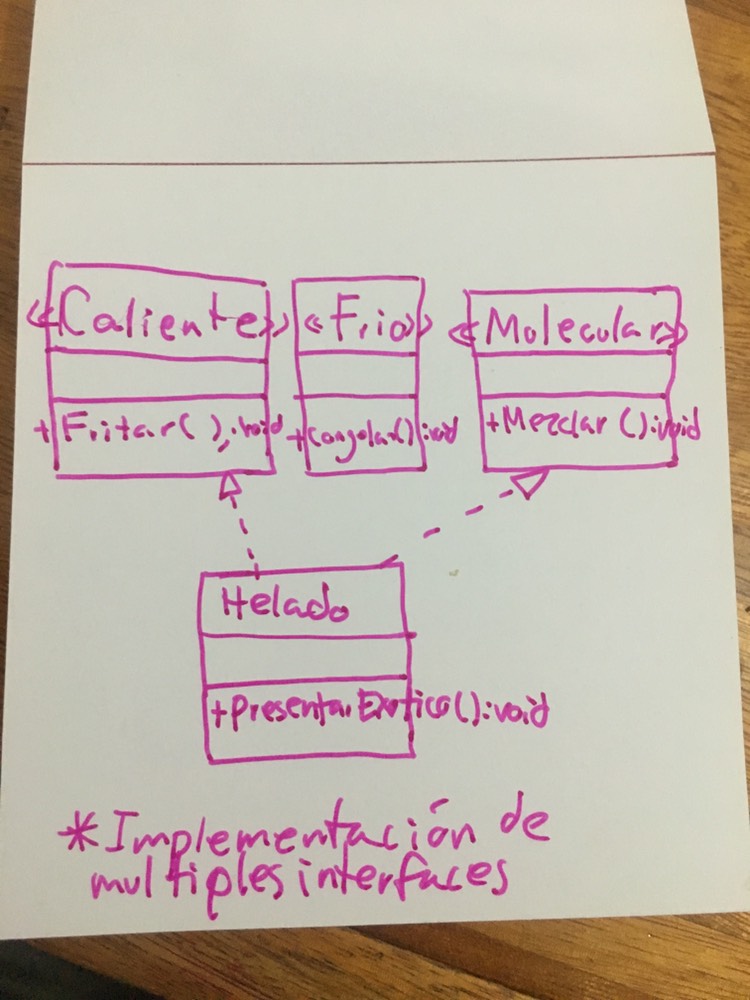 «Caliente»
+Fritar():void
«Frio»
+Congelar():void
«Molecular»
+Mezclar():void
Helado
+PresentarExotico():void
*Implementación de
multiples interfaces